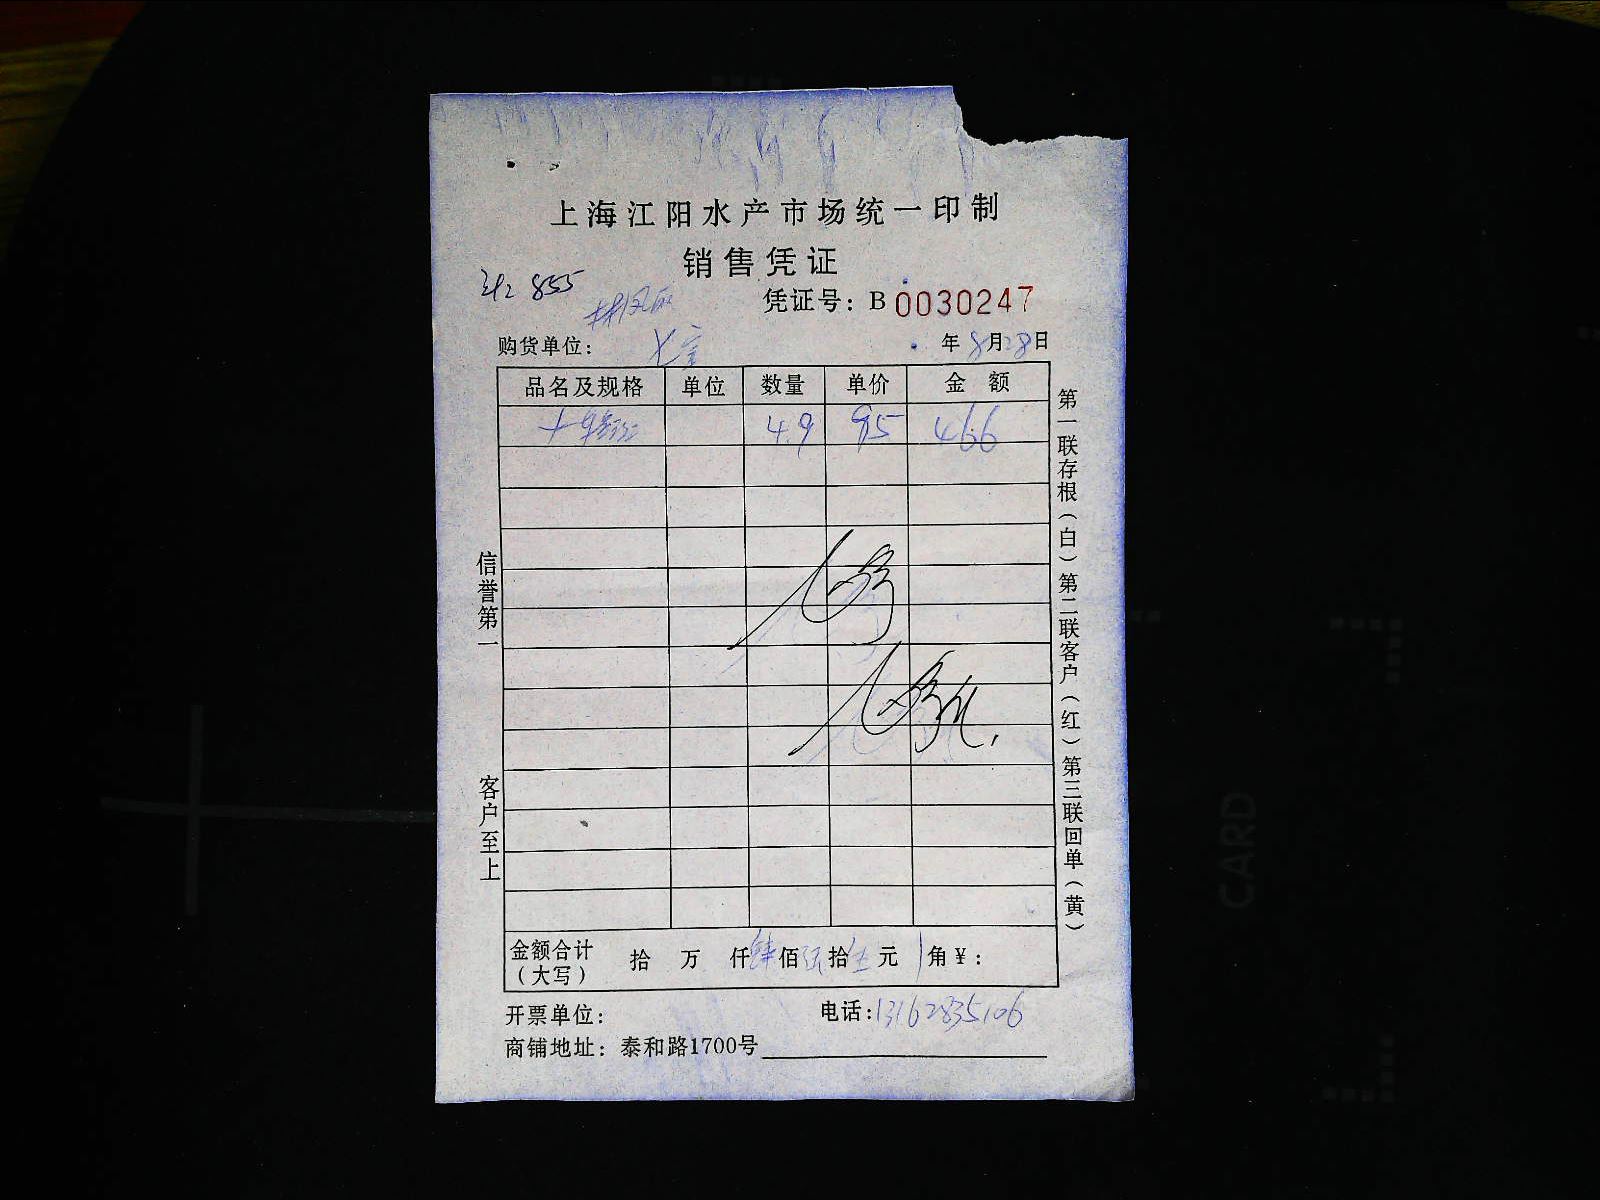 上海江阳水产市场统一印制
销售凭证
855
凭证号：B 0030247
购货单位： 七宝 年8月28日
品名及规格 单位 数量 单价 金额
4.9 95 466
信誉第一
客户至上
第一联存根（白）第二联客户（红）第三联回单（黄）
金额合计（大写） 拾 万 仟肆佰 拾 元 角￥：
开票单位： 电话：13162835106
商铺地址：泰和路1700号